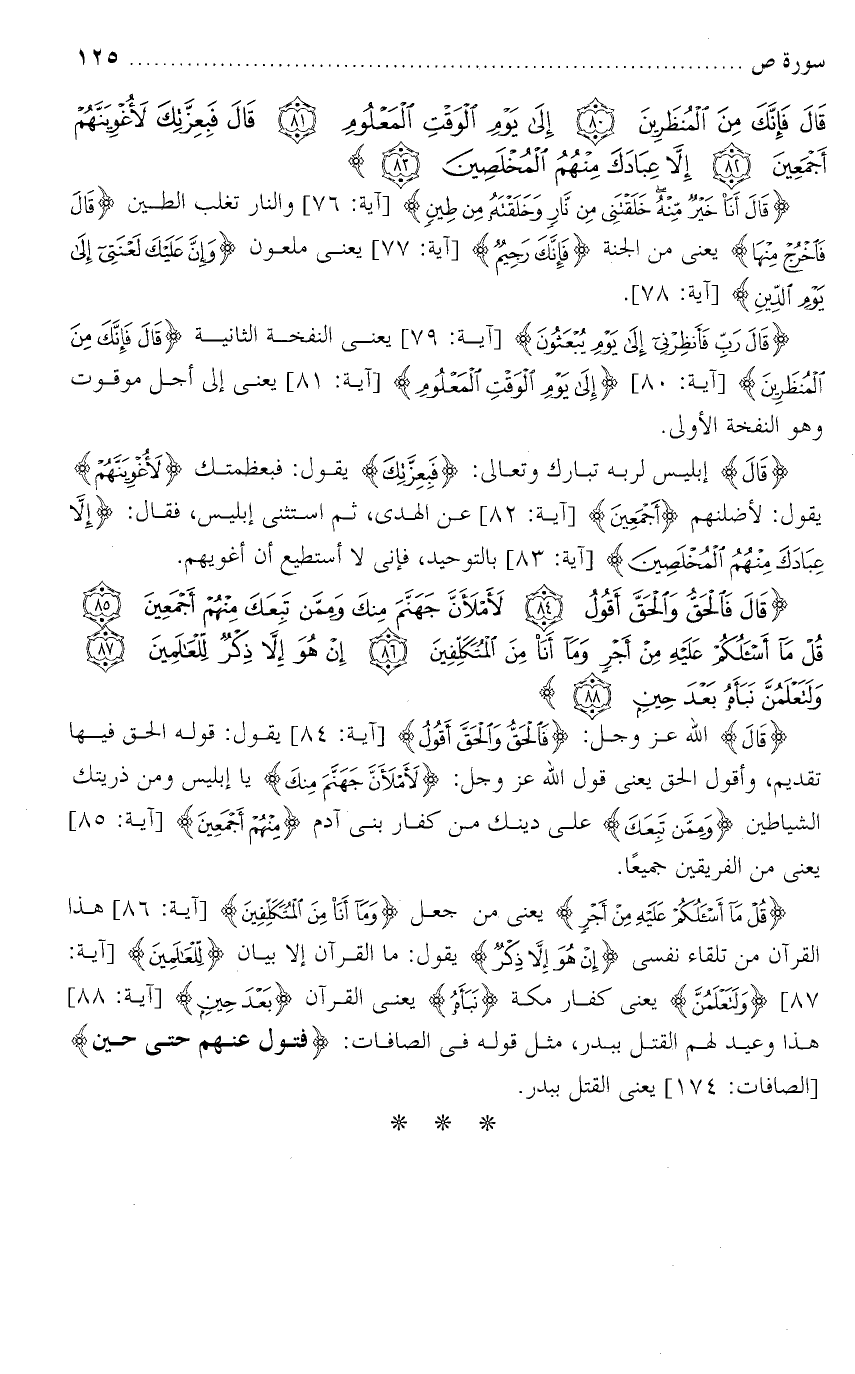 سورة ص ........................................................................... ١٢٥
قَالَ فَإِنَّكَ مِنَ ٱلْمُنظَرِينَ ﴿٨٠﴾ إِلَىٰ يَوْمِ ٱلْوَقْتِ ٱلْمَعْلُومِ ﴿٨١﴾ قَالَ فَبِعِزَّتِكَ لَأُغْوِيَنَّهُمْ
أَجْمَعِينَ ﴿٨٢﴾ إِلَّا عِبَادَكَ مِنْهُمُ ٱلْمُخْلَصِينَ ﴿٨٣﴾ ﴾
﴿قَالَ أَنَا۠ خَيْرٌ مِّنْهُ ۖ خَلَقْتَنِى مِن نَّارٍ وَخَلَقْتَهُۥ مِن طِينٍ﴾ [آية: ٧٦] والنار تغلب الطين ﴿قَالَ
فَٱخْرُجْ مِنْهَا﴾ يعنى من الجنة ﴿فَإِنَّكَ رَجِيمٌ﴾ [آية: ٧٧] يعنى ملعون ﴿وَإِنَّ عَلَيْكَ لَعْنَتِىٓ إِلَىٰ
يَوْمِ ٱلدِّينِ﴾ [آية: ٧٨].
﴿قَالَ رَبِّ فَأَنظِرْنِىٓ إِلَىٰ يَوْمِ يُبْعَثُونَ﴾ [آية: ٧٩] يعنى النفخة الثانية ﴿قَالَ فَإِنَّكَ مِنَ
ٱلْمُنظَرِينَ﴾ [آية: ٨٠] ﴿إِلَىٰ يَوْمِ ٱلْوَقْتِ ٱلْمَعْلُومِ﴾ [آية: ٨١] يعنى إلى أجل موقوت
وهو النفخة الأولى.
﴿قَالَ﴾ إبليس لربه تبارك وتعالى: ﴿فَبِعِزَّتِكَ﴾ يقول: فبعظمتك ﴿لَأُغْوِيَنَّهُمْ﴾
يقول: لأضلنهم ﴿أَجْمَعِينَ﴾ [آية: ٨٢] عن الهدى، ثم استثنى إبليس، فقال: ﴿إِلَّا
عِبَادَكَ مِنْهُمُ ٱلْمُخْلَصِينَ﴾ [آية: ٨٣] بالتوحيد، فإنى لا أستطيع أن أغويهم.
﴿قَالَ فَٱلْحَقُّ وَٱلْحَقَّ أَقُولُ ﴿٨٤﴾ لَأَمْلَأَنَّ جَهَنَّمَ مِنكَ وَمِمَّن تَبِعَكَ مِنْهُمْ أَجْمَعِينَ ﴿٨٥﴾
قُلْ مَآ أَسْـَٔلُكُمْ عَلَيْهِ مِنْ أَجْرٍ وَمَآ أَنَا۠ مِنَ ٱلْمُتَكَلِّفِينَ ﴿٨٦﴾ إِنْ هُوَ إِلَّا ذِكْرٌ لِّلْعَٰلَمِينَ ﴿٨٧﴾
وَلَتَعْلَمُنَّ نَبَأَهُۥ بَعْدَ حِينٍۭ ﴿٨٨﴾ ﴾
﴿قَالَ﴾ الله عز وجل: ﴿فَٱلْحَقُّ وَٱلْحَقَّ أَقُولُ﴾ [آية: ٨٤] يقول: قوله الحق فيها
تقديم، وأقول الحق يعنى قول الله عز وجل: ﴿لَأَمْلَأَنَّ جَهَنَّمَ مِنكَ﴾ يا إبليس ومن ذريتك
الشياطين ﴿وَمِمَّن تَبِعَكَ﴾ على دينك من كفار بنى آدم ﴿مِنْهُمْ أَجْمَعِينَ﴾ [آية: ٨٥]
يعنى من الفريقين جميعًا.
﴿قُلْ مَآ أَسْـَٔلُكُمْ عَلَيْهِ مِنْ أَجْرٍ﴾ يعنى من جعل ﴿وَمَآ أَنَا۠ مِنَ ٱلْمُتَكَلِّفِينَ﴾ [آية: ٨٦] هذا
القرآن من تلقاء نفسى ﴿إِنْ هُوَ إِلَّا ذِكْرٌ﴾ يقول: ما القرآن إلا بيان ﴿لِّلْعَٰلَمِينَ﴾ [آية:
٨٧] ﴿وَلَتَعْلَمُنَّ﴾ يعنى كفار مكة ﴿نَبَأَهُۥ﴾ يعنى القرآن ﴿بَعْدَ حِينٍۭ﴾ [آية: ٨٨]
هذا وعيد لهم القتل ببدر، مثل قوله فى الصافات: ﴿فتول عنهم حتى حين﴾
[الصافات: ١٧٤] يعنى القتل ببدر.
* * *